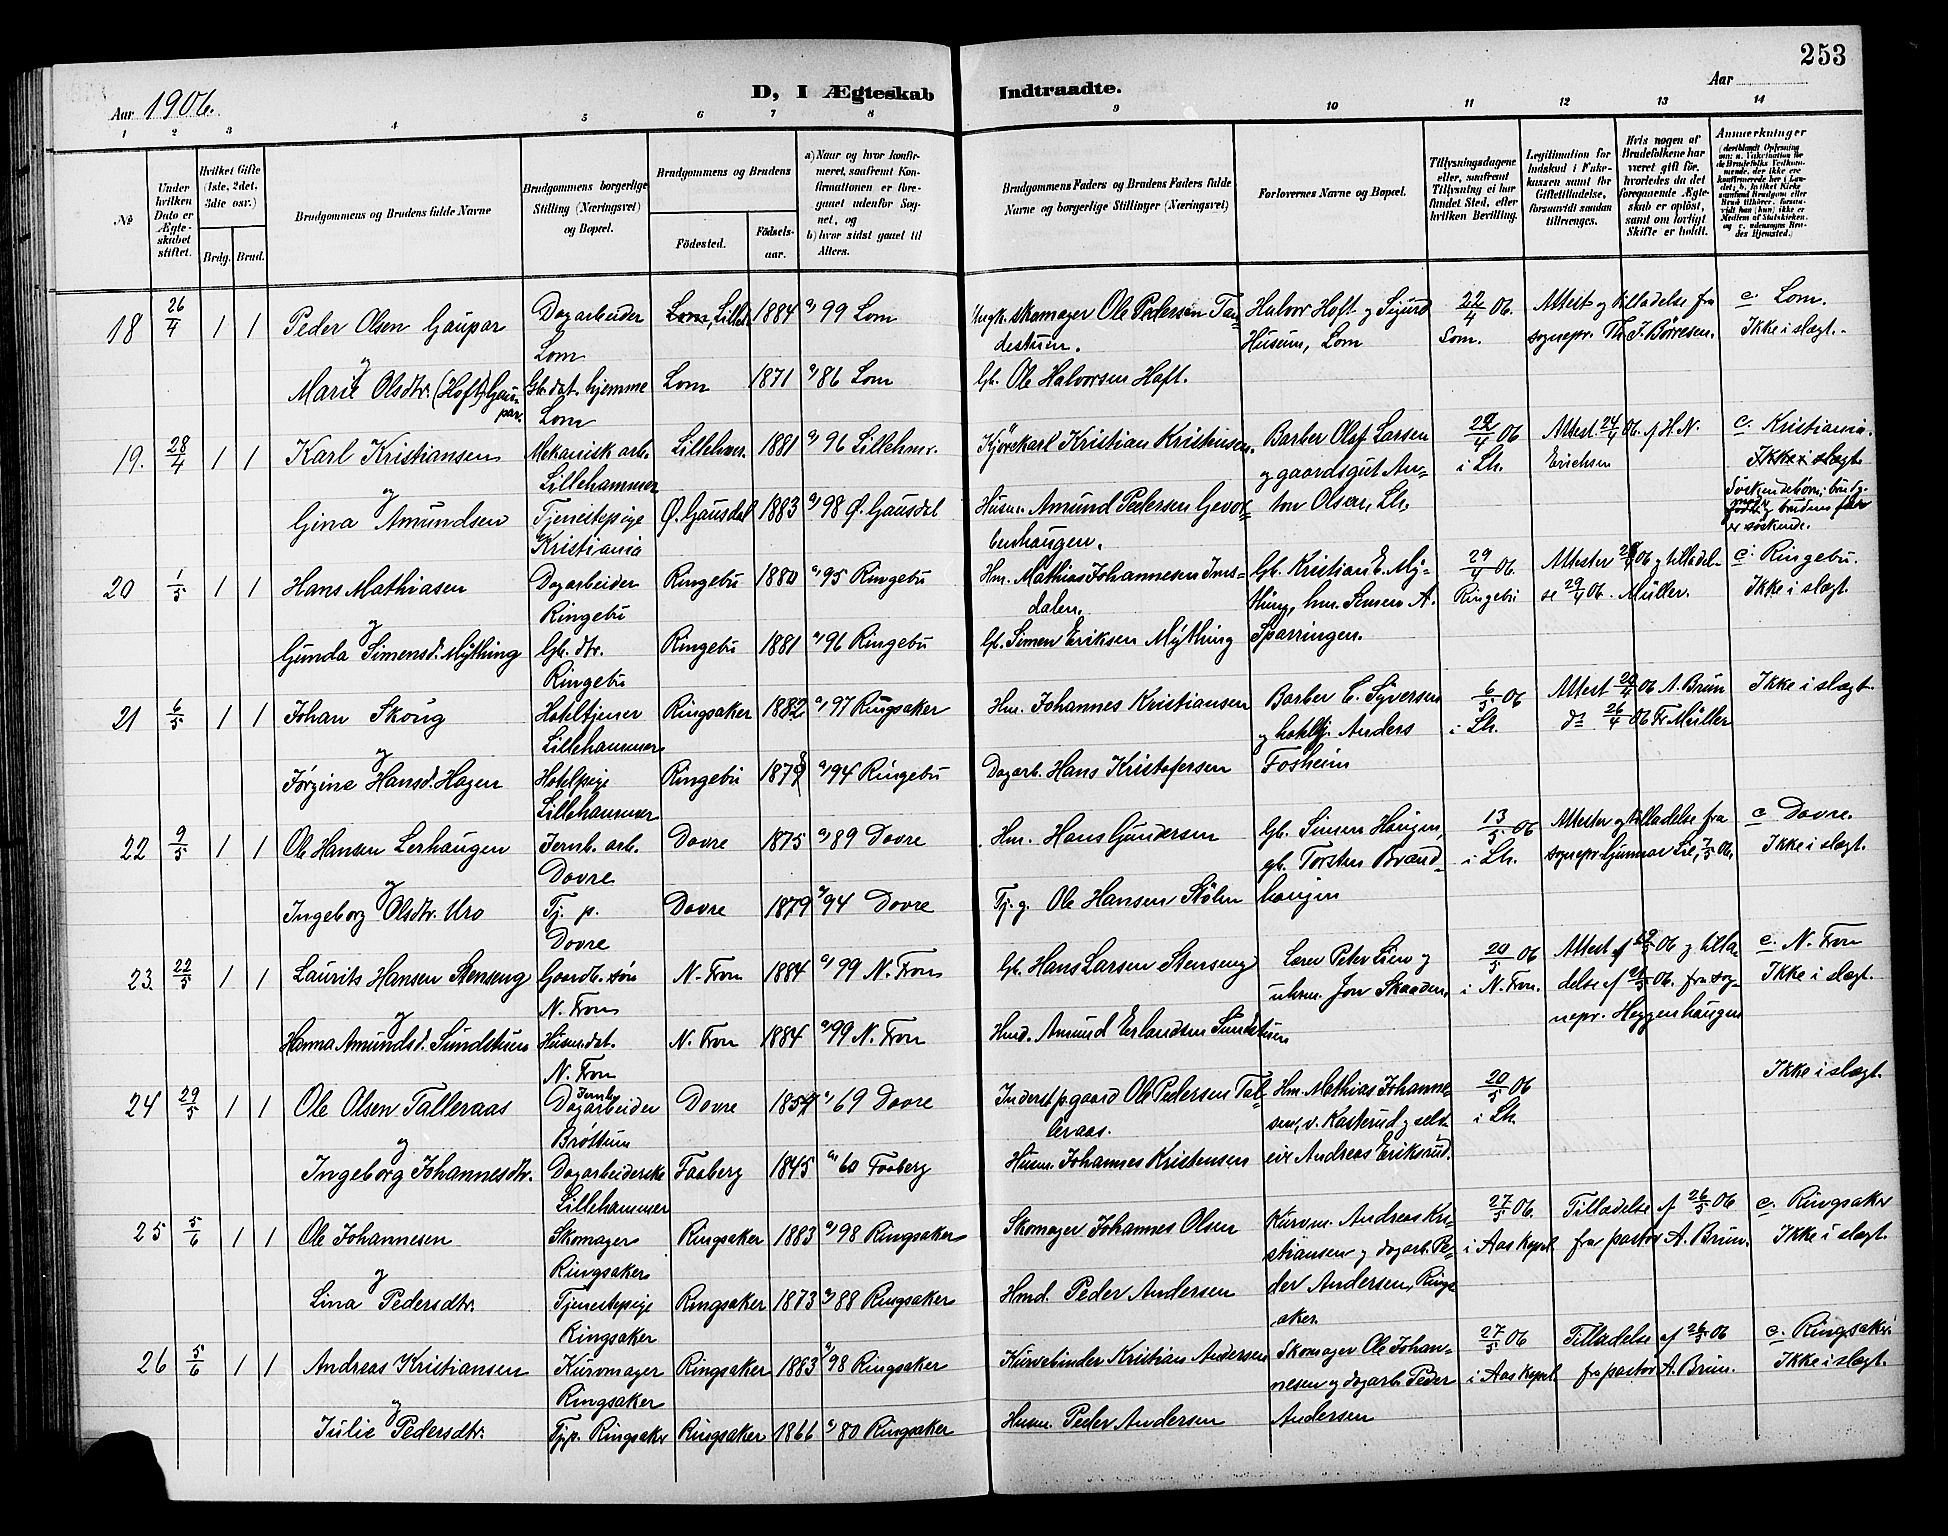 253
Aar 1906.
D, I Ægteskab Indtraadte.
Aar
1 2 3 4 5 6 7 8 9 10 11 12 13 14
№
Under hvilken Dato er Ægteskabet stiftet.
Hvilket Gifte (1ste, 2det, 3die osv.)
Brdg. Brud.
Brudgommens og Brudens fulde Navne
Brudgommens borgerlige Stilling (Næringsvei) og Bopæl.
Brudgommens og Brudens
Födested. Födselsaar.
a) Naar og hvor konfirmeret, saafremt Konfirmationen er foregaaet udenfor Sognet, og
b) hvor sidst gaaet til Alters.
Brudgommens Faders og Brudens Faders fulde Navne og borgerlige Stillinger (Næringsvei)
Forlovernes Navne og Bopæl.
Tillysningsdagene eller, saafremt Tillysning ei har fundet Sted, efter hvilken Bevilling.
Legitimation for Indskud i Enkekassen samt for Giftetilladelse, forsaavidt saadan tiltrænges.
Hvis nogen af Brudefolkene har været gift før, hvorledes da det foregaaende Ægteskab er opløst, samt om lovligt Skifte er holdt.
Anmerkninger
18 26/4 1 1 Peder Olsen Gaupar Dagarbeider Lom Lom, Lilleh. 1884 a) 99 Lom Ungk. skomager Ole Pedersen Tandestuen. Halvor Hoft og Sigurd Husum, Lom 22/4 06. Lom. Attest og tilladelse fra sognepr. Th. J. Börresen. c. Lom. Ikke i slægt.
og
Marit Olsdtr. (Hoft) Gaupar. Gb. dat. hjemme Lom Lom 1871 a) 86 Lom Gb. Ole Halvorsen Hoft.
19. 28/4 1 1 Karl Kristiansen Mekanisk arb. Lillehammer Lillehmr. 1881 a) 96 Lillehmr. Kjörekarl Kristian Kristiansen. Barber Olaf Larsen og gaardsgut Anton Olsen, Lh. 22/4 06 i Lh. Attest 24/4 06. f H. N. Erichsen c. Kristiania. Ikke i slægt
Söskendebörn; brudg. moder og brudens fader er söskende.
og
Gina Amundsen Tjenestepige Kristiania Ø. Gausdal 1883 a) 98 Ø. Gausdal Husm. Amund Pedersen Gevorbenhaugen.
20 1/5 1 1 Hans Mathiasen Dagarbeider Ringebu Ringebu 1880 a) 95 Ringebu Hm. Mathias Johannesen Imsdalen. Gb. Kristian E. Mything, hm. Simen A. Sparringen. 29/4 06. Ringebu Attester 28/4 06 og tilladelse 29/4 06. Müller. c. Ringebu. Ikke i slægt.
og
Gunda Simensd. Mything Gb. dtr. Ringebu Ringebu 1881 a) 96 Ringebu Gb. Simen Eriksen Mything
21 6/5 1 1 Johan Skoug Hoteltjener Lillehammer Ringsaker 1882 a) 97 Ringsaker Hm. Johannes Kristiansen Barber C. Syversen og hoteltj. Anders Fosheim 6/5 06 i Lh. Attest 20/4 06 A. Brun do 26/4 06 Fr. Müller Ikke i slægt.
og
Jørgine Hansd. Hagen Hotelpige Lillehammer Ringebu 1879 a) 94 Ringebu Dagarb. Hans Kristofersen
22 9/5 1 1 Ole Hansen Lerhaugen Jernb. arb. Dovre Dovre 1875 a) 89 Dovre Hm. Hans Gundersen Gb. Simen Haugen, gb. Torsten Brændhaugen 13/5 06 i Lh. Attester og tilladelse fra sognepr. Gunnar Lie, 7/5 06. c Dovre. Ikke i slægt.
og
Ingeborg Olsdtr. Uro Tj. p. Dovre Dovre 1879 a) 94 Dovre Tj. g. Ole Hansen Stölen
23. 22/5 1 1 Laurits Hansen Stenseng Gaardb. sön N. Fron N. Fron 1884 a) 99 N. Fron Gb. Hans Larsen Stenseng Lærer Peter Lien og uhrm. Jon Skaaden, 20/5 06 i N. Fron. Attest af 19/5 06 og tilladelse af 21/5 06. fra sognepr. Heggenhaugen c. N. Fron Ikke i slægt.
og
Hanna Amundsd. Sundstuen Husmdat. N. Fron N. Fron 1884 a) 99 N. Fron Hmd. Amund Erlandsen Sundstuen
24 29/5 1 1 Ole Olsen Talleraas Jernb. Dagarbeider Bröttum Dovre 1854 a) 69 Dovre Inderst p. gaard Ole Pedersen Talleraas. Hm. Mathias Johannesen, v. Kasterud og selveier Andreas Eriksrud. 20/5 06 i Lh. Ikke i slægt.
og
Ingeborg Johannesdtr. Dagarbeiderske Lillehammer Faaberg 1845 a) 60 Faaberg Husm. Johannes Kristensen
25 5/6 1 1 Ole Johannesen Skomager Ringsaker Ringsaker 1883 a) 98 Ringsaker Skomager Johannes Olsen Kurvm. Andreas Kristiansen og dagarb. Peder Andersen, Ringsaker. 27/5 06. i Aas kapel. Tilladelse af 26/5 06 fra pastor A. Brun. c. Ringsaker Ikke i slægt.
og
Lina Pedersdtr. Tjenestepige Ringsaker Ringsaker 1873 a) 88 Ringsaker Hmd. Peder Andersen
26 5/6 1 1 Andreas Kristiansen Kurvmager Ringsaker Ringsaker 1883 a) 98 Ringsaker Kurvebinder Kristian Andersen Skomager Ole Johannesen og dagarb. Peder Andersen 27/5 06 i Aas kapel. Tilladelse af 26/5 06 fra pastor A. Brun. c. Ringsaker Ikke i slægt.
og
Julie Pedersdtr. Tj.p. Ringsaker Ringsaker 1866 a) 80 Ringsaker Husm. Peder Andersen